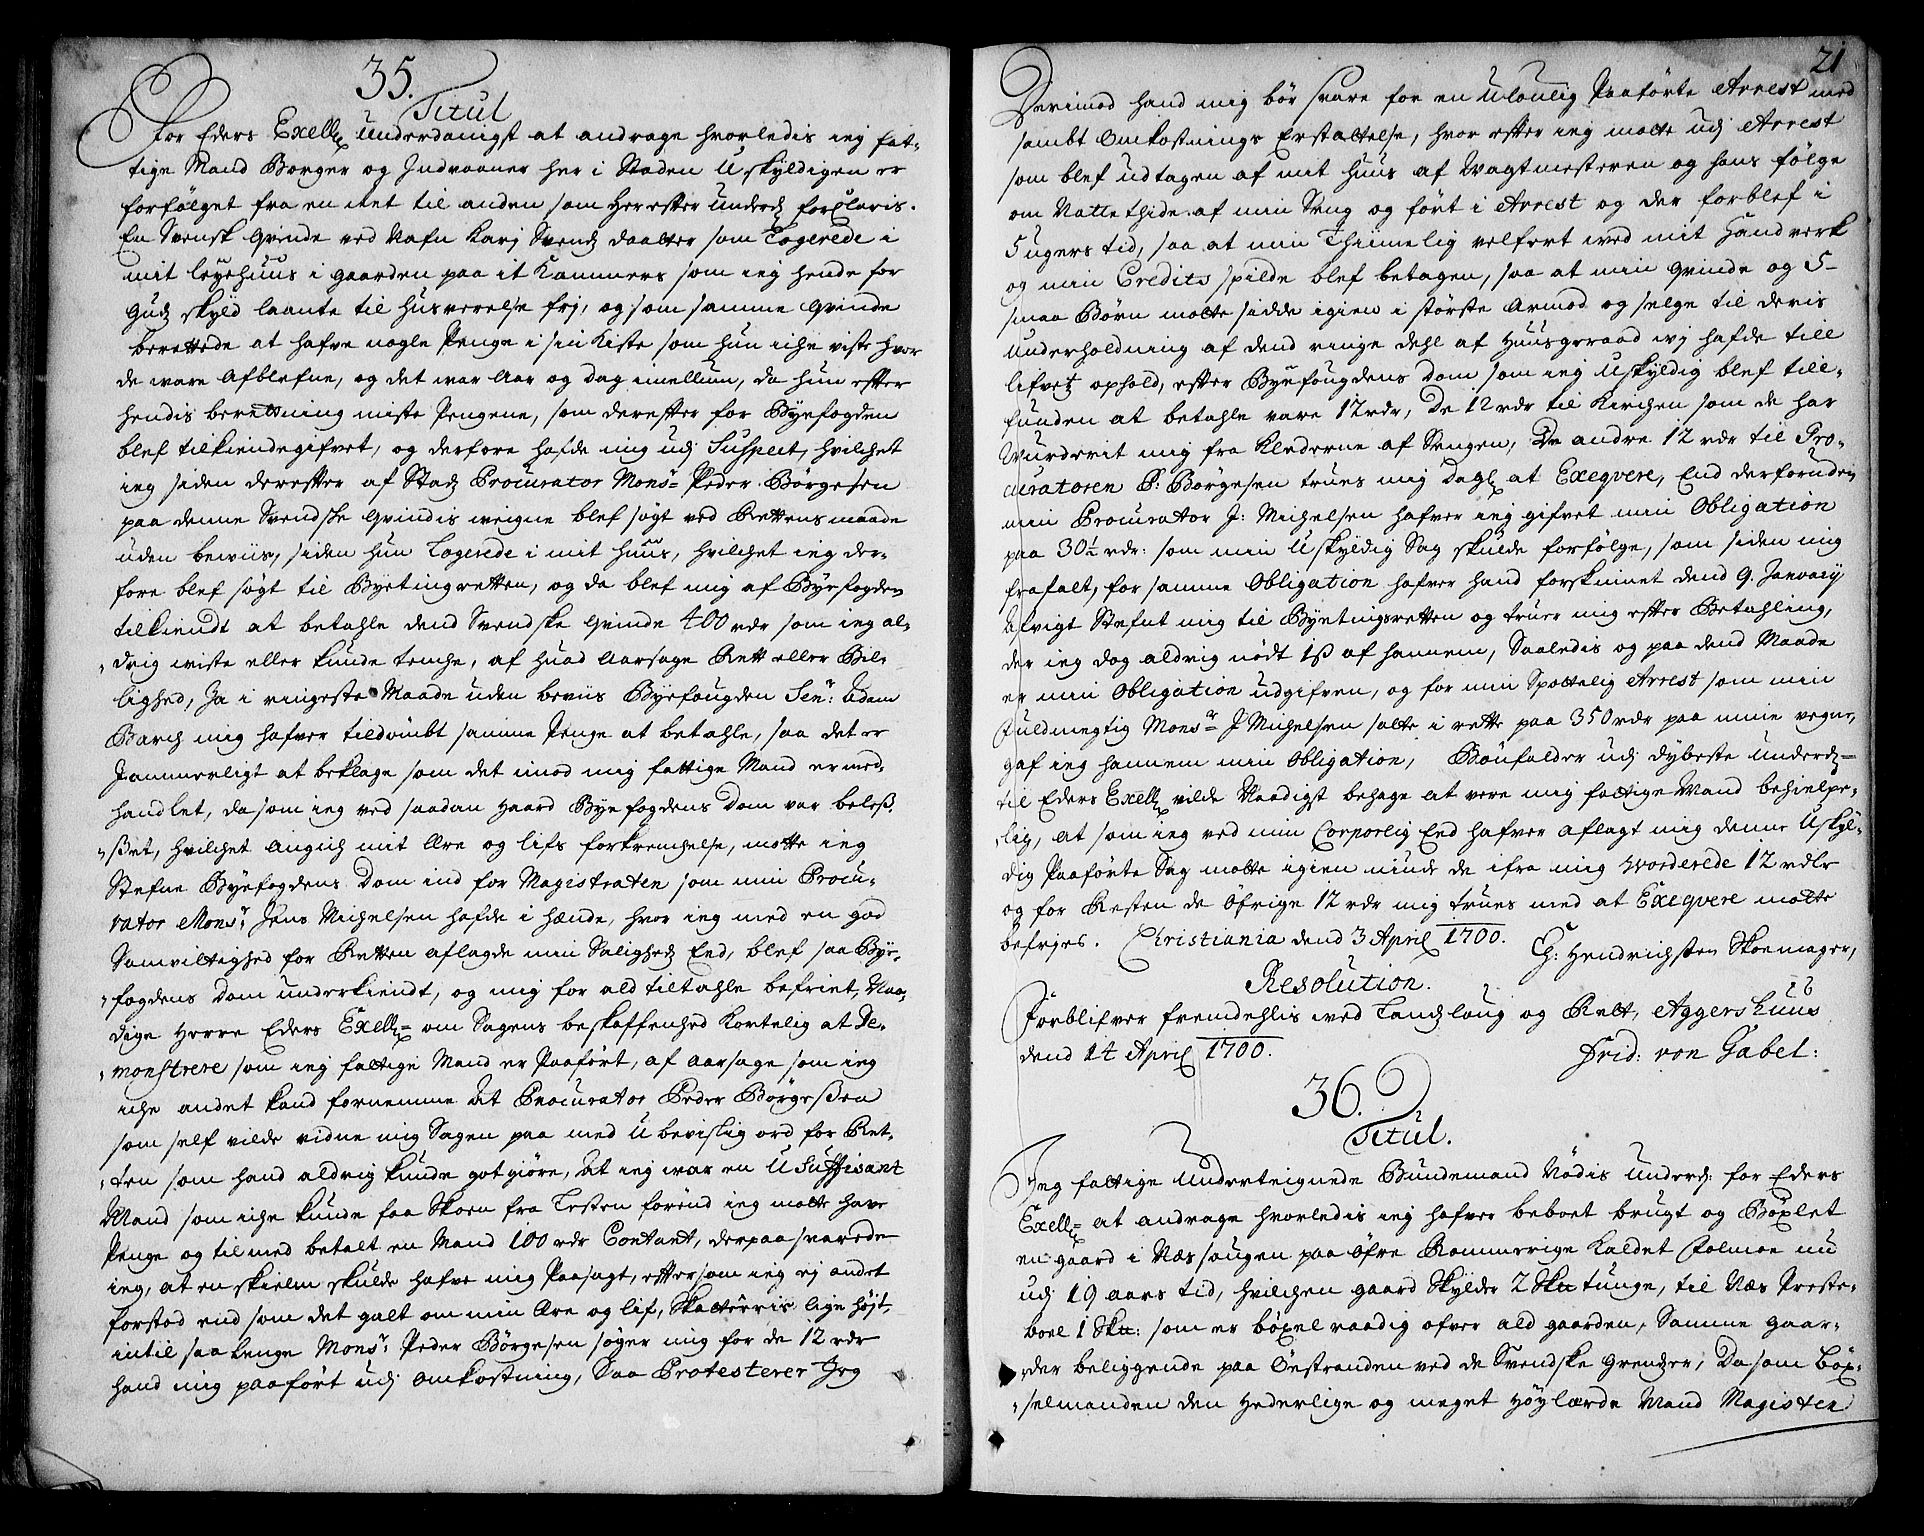 35.
Titul
For Eders Exell: underdanigst at andrage hvorledis ieg fat-
tige Mand Borger og Indvaaner her i Staden U skyldigen er
forfølget fra en Ret til anden som Herefter underd: forclaris.
En Svensk Qvinde ved Nafn Karj Svends daatter som Logerede i
mit leyehuus i gaarden paa it Kammers som ieg hende for
Guds skyld laante til Husverelse frj, og som samme Qvinde
berettede at hafve nogle Penge i sin Kiste som hun iche viste hvor
de ware Afblefne, og det war Aar og dag imellum, da hun efter
hendis berettning miste Pengene, som derefter for Byefogden
blef tilkiendegifvet, og derfore hafde mig udj Suspect, hvilchet
ieg siden derefter af Stads Procurator Monsr Peder Børgesen
paa denne Svendske Qvindis weigne blef søgt ved Rettens maade
uden beviis, siden hun Logerede i mit huus, hvilchet ieg der-
fore blef søgt til Byetingretten, og da blef mig af Byefogden
tilkiendt at betahle dend Svendske Qvinde 400 rdr som ieg al-
drig wiste eller kunde tenche, af huad Aarsage Rett eller Bil-
lighed, Ja i ringeste Maade uden beviis Byefougden Senr: Adam
Barch mig hafver tildømbt samme Penge at betahle, saa det er
Jammerligt at beklage som det imod mig fattige Mand er med-
handlet, da som ieg ved saadan haard Byefogdens Dom var beleß-
ßet, hvilchet angich mit Ære og lifs forkrenchelse, motte ieg
Stefne Byefogdens Dom ind for Magistraten som min Procu-
rator Monsr: Jens Michelsen hafde i hænde, hvor ieg med en god
Samvittighed for Retten aflagde min Saligheds Eed, blef saa Bye-
fogdens Dom underkiendt, og mig for ald tiltahle befriet, Naa-
dige Herre Eders Exell: om Sagens beskaffenhed Kortelig at De-
monstrere som ieg fattige Mand er Paaført, af aarsage som ieg
iche andet kand fornemme At Procurator Peder Børgeßen
som self vilde vidne mig Sagen paa med U bevislig ord for Ret-
ten som hand aldrig kunde gotgiøre, At ieg war en U Suffisant
Mand som iche kunde faa Skoen fra Lesten førend ieg motte have
Penge og tilmed betalt en Mand 100 rdr Contant, derpaa svarede
ieg, at en skielm skulde hafve mig Paasagt, eftersom ieg ej andet
forstod end som det galt om min Ære og lif, lige høyt,
intil saa lenge Monsr: Peder Børgesen søger mig for de 12 rdr
hand mig paaført udj Omkostning, Saa Protesterer Jeg
21
Derimod hand mig bør svare for en Ulovlig Paaførte Arrest med
sambt Omkostnings Erstattelse, hvor efter ieg motte udj Arrest
som blef udtagen af mit huus af Wagtmesteren og hans følge
om Nattethide af min Seng og ført i Arrest og der forblef i
5 ugers tid, saa at min Thimelig velfert wed mit Handverk
og min Credits spilde blef betagen, saa at min Qvinde og 5-
smaa Børn motte sidde igien i største Armod og selge til deris
underholdning af dend ringe dehl af Huusgeraad wj hafde till
lifvetz ophold, efter Byefougdens dom som ieg Uskyldig blef till-
funden at betahle vare 12 rdr, De 12 rdr til Kirchen som de har
Wurderit mig fra Klederne af Sengen, De andre 12 rdr til Pro-
curatoren P: Børgesen trues mig Dagl: at Exeqvere, End derforuden
min Procurator J: Michelsen hafver ieg gifvet min Obligation
paa 30½ rdr: som min Uskyldig Sag skulde forfølge, som siden mig
frafalt, for samme Obligation hafver hand forskinnet dend 9. January
Afvigt Stefnt mig til Byetingsretten og truer mig efter Betahling,
der ieg dog aldrig nødt 1ß af hannem, Saaledis og paa dend Maade
er min Obligation udgifven, og for min Spottelig Arrest som min
fuldmegtig Monsr: J Michelsen satte i rette paa 350 rdr paa mine vegne,
gaf ieg hannem min Obligation, Bønfalder udj dybeste underd:
til Eders Exell: vilde Naadigst behage at vere mig fattige Mand behielpe-
lig, at som ieg ved min Corporlig Eed hafver aflagt mig denne Uskyl-
dig Paaførte Sag motte igien niude de ifra mig Worderede 12 rdlr
og for Resten de øfrige 12 rdr mig trues med at Exeqvere motte
befries. Christiania dend 3 April 1700.
Ch: Hendrichsen Skoemager,
Resolution.
Forblifver fremdehlis wed Landsloug og Rett, Aggershuus
dend 14 April 1700.
Frid: von Gabel:
36.
Titul.
Jeg fattige underteignede Bundemand Nødis underd: for Eders
Exell: at andrage hvorledis ieg hafver beboet brugt og Bøxlet
en gaard i Næssougen paa Øfre Rommerige Kaldet Folmoe nu
udj 19 aars tid, hvilchen gaard Skylder 2 Skn tunge, til Næs Preste-
boel 1 Skn: som er bøxel raadig ofver ald gaarden, Samme gaar-
der beliggende paa Østranden ved de Svendske Grendser, Da som Bøx-
selmanden den Hederlige og meget Høylærde Mand Magister